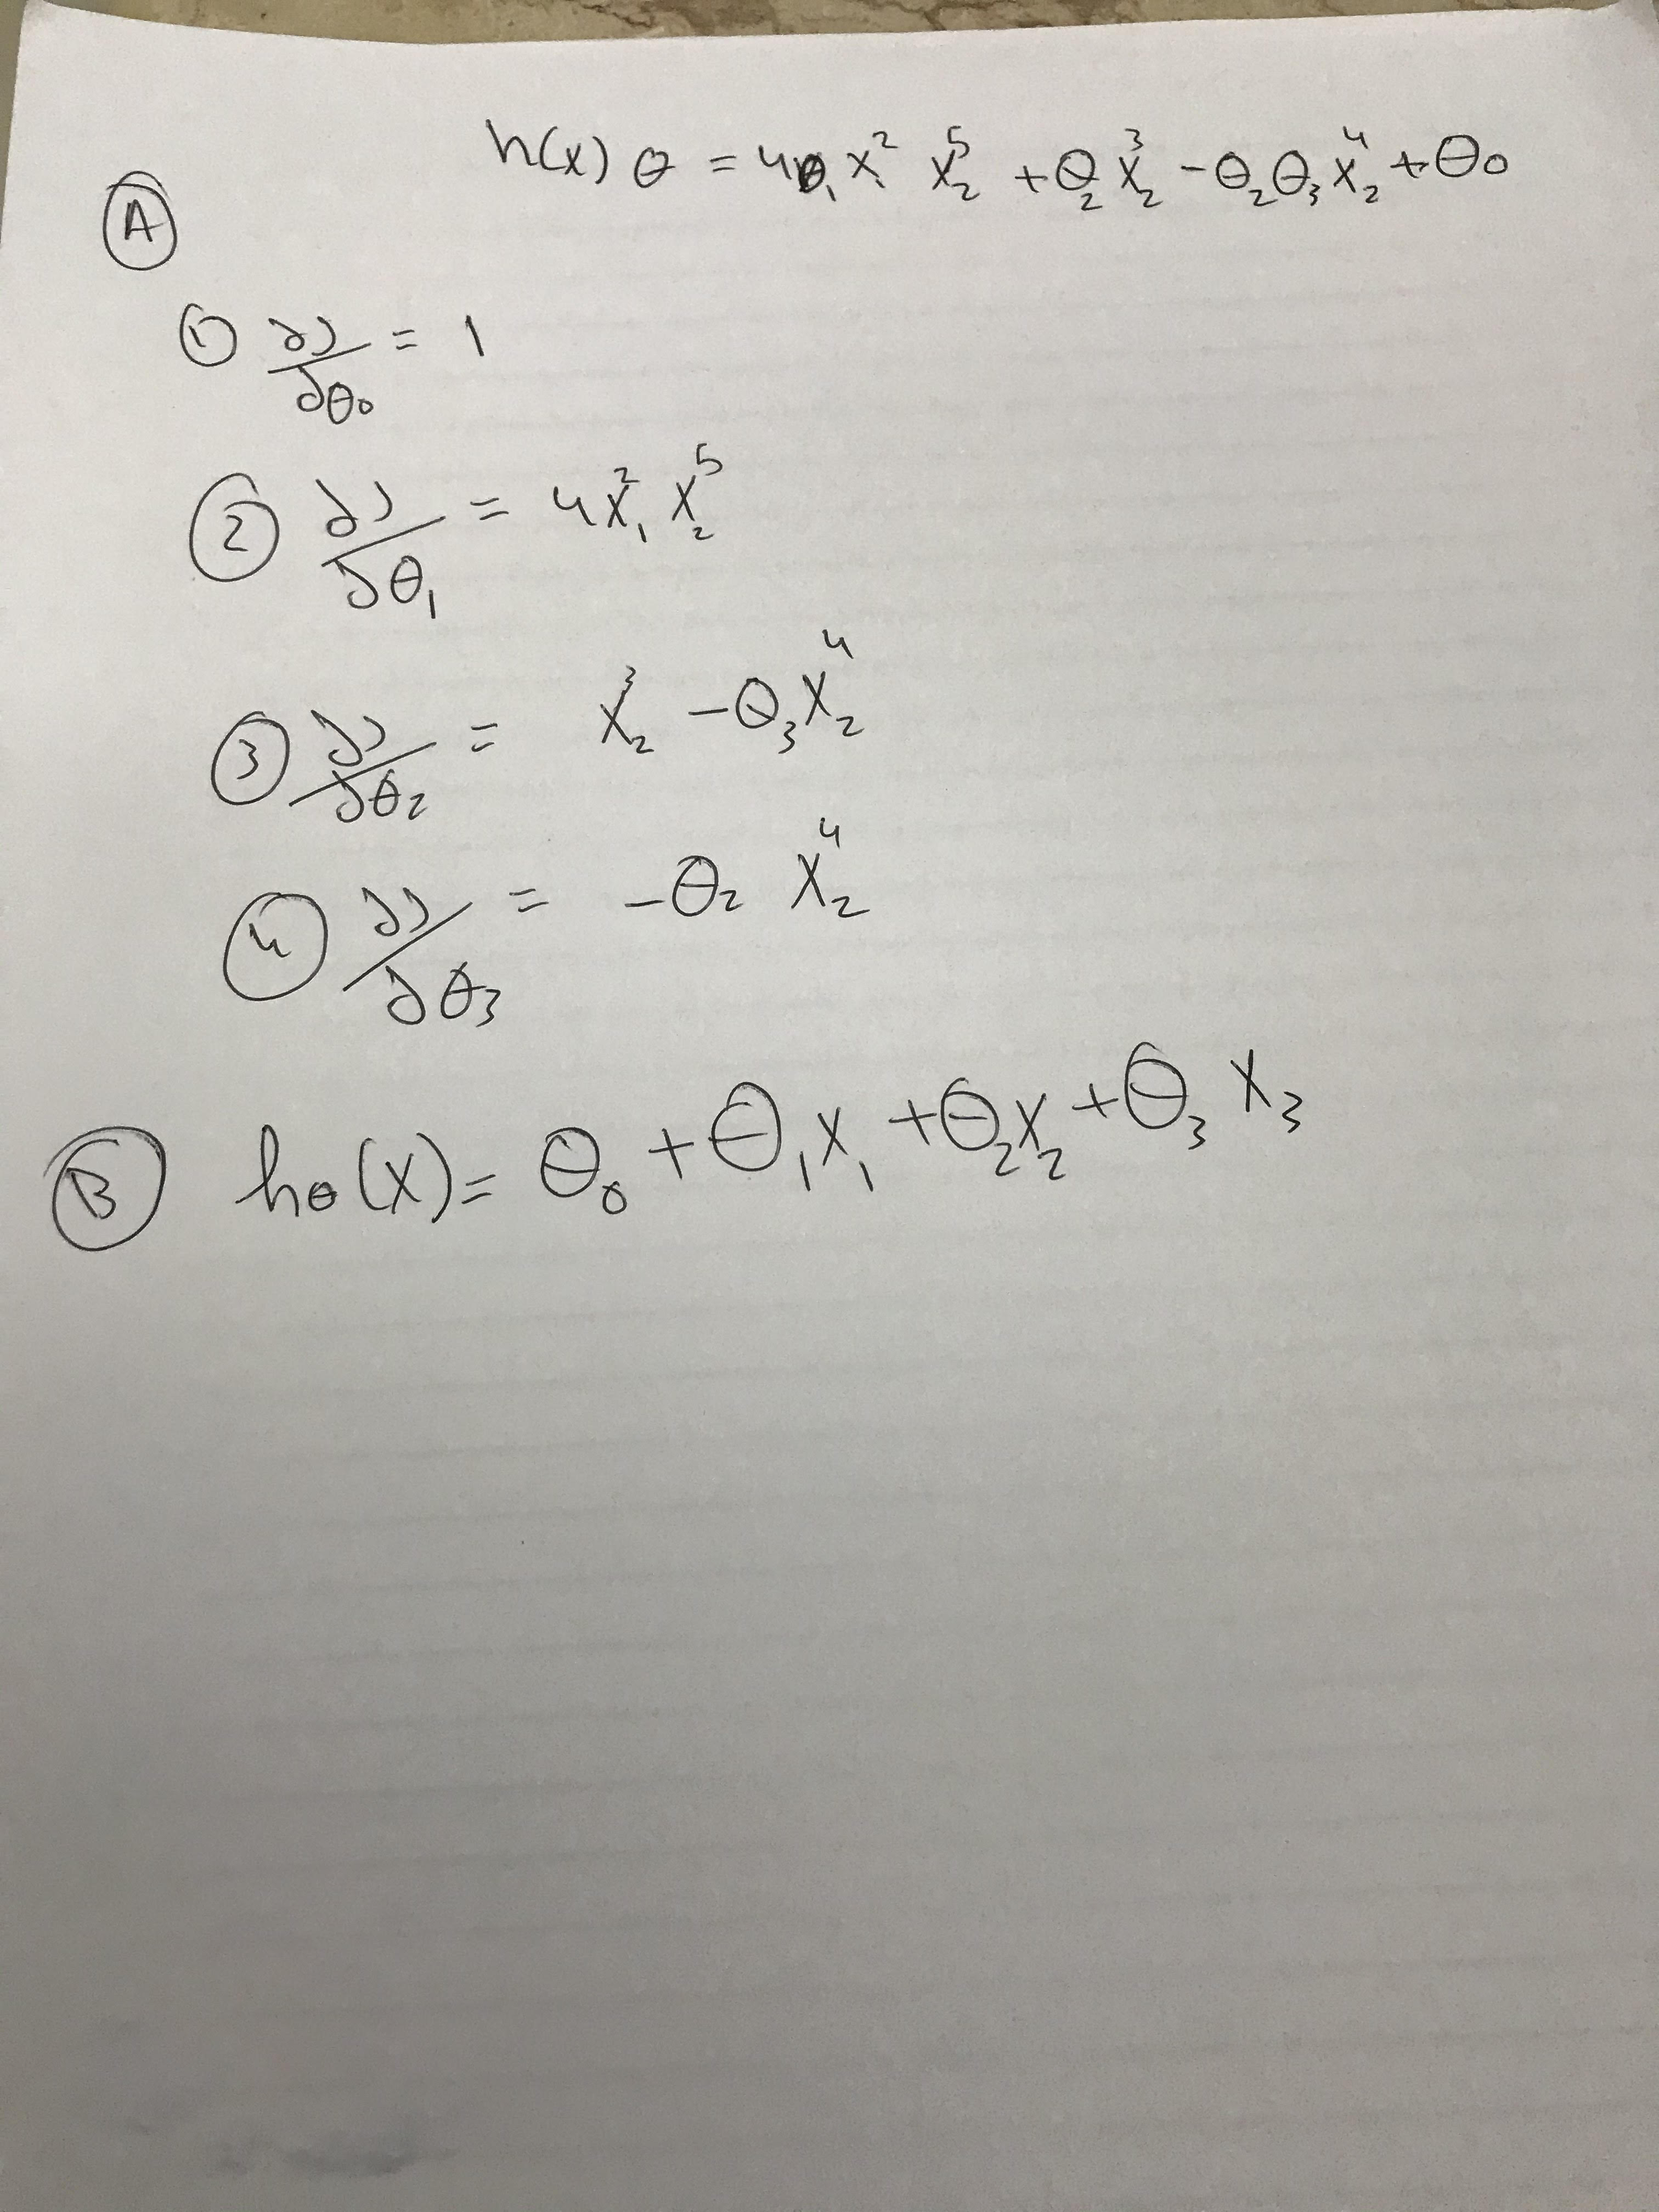 h(x) θ = 4θ₁ x₁² x₂⁵ + θ₂ x₂³ - θ₂ θ₃ x₂⁴ + θ₀
Ⓐ
① ∂J/∂θ₀ = 1
② ∂J/∂θ₁ = 4x₁² x₂⁵
③ ∂J/∂θ₂ = x₂³ - θ₃x₂⁴
④ ∂J/∂θ₃ = -θ₂ x₂⁴
Ⓑ hθ(x) = θ₀ + θ₁x₁ + θ₂x₂ + θ₃ x₃